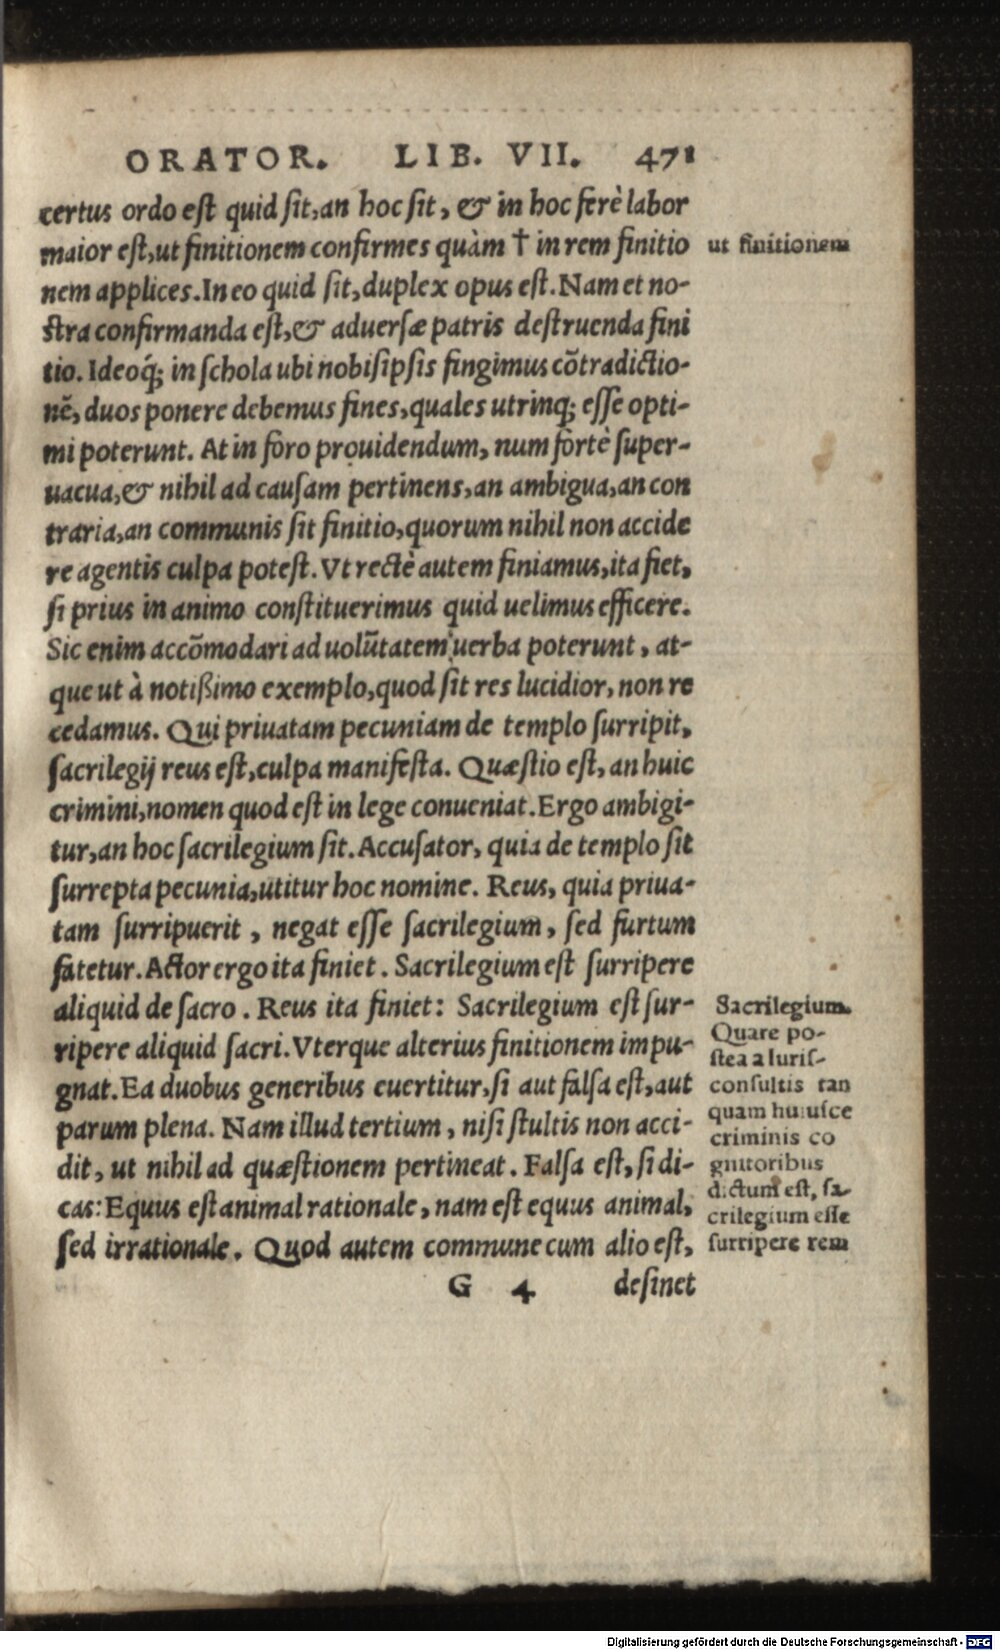 ORATOR. LIB. VII. 471
certus ordo est quid sit, an hoc sit, & in hoc ferè labor
maior est, ut finitionem confirmes quàm † in rem finitio
nem applices. In eo quid sit, duplex opus est. Nam et no-
stra confirmanda est, & aduersæ patris destruenda fini
tio. Ideoq́; in schola ubi nobisipsis fingimus cōtradictio-
nē, duos ponere debemus fines, quales utrinq; esse opti-
mi poterunt. At in foro prouidendum, num fortè super-
uacua, & nihil ad causam pertinens, an ambigua, an con
traria, an communis sit finitio, quorum nihil non accide
re agentis culpa potest. Vt rectè autem finiamus, ita fiet,
si prius in animo constituerimus quid uelimus efficere.
Sic enim accōmodari ad uolūtatem uerba poterunt, at-
que ut à notißimo exemplo, quod sit res lucidior, non re
cedamus. Qui priuatam pecuniam de templo surripit,
sacrilegij reus est, culpa manifesta. Quæstio est, an huic
crimini, nomen quod est in lege conueniat. Ergo ambigi-
tur, an hoc sacrilegium sit. Accusator, quia de templo sit
surrepta pecunia, utitur hoc nomine. Reus, quia priua-
tam surripuerit, negat esse sacrilegium, sed furtum
fatetur. Actor ergo ita finiet. Sacrilegium est surripere
aliquid de sacro. Reus ita finiet: Sacrilegium est sur-
ripere aliquid sacri. Vterque alterius finitionem impu-
gnat. Ea duobus generibus euertitur, si aut falsa est, aut
parum plena. Nam illud tertium, nisi stultis non acci-
dit, ut nihil ad quæstionem pertineat. Falsa est, si di-
cas: Equus est animal rationale, nam est equus animal,
sed irrationale. Quod autem commune cum alio est,
G 4 desinet
ut finitionem
Sacrilegium.
Quare po-
stea a Iuris-
consultis tan
quam huiusce
criminis co
gnitoribus
dictum est, sa-
crilegium esse
surripere rem
Digitalisierung gefördert durch die Deutsche Forschungsgemeinschaft - DFG